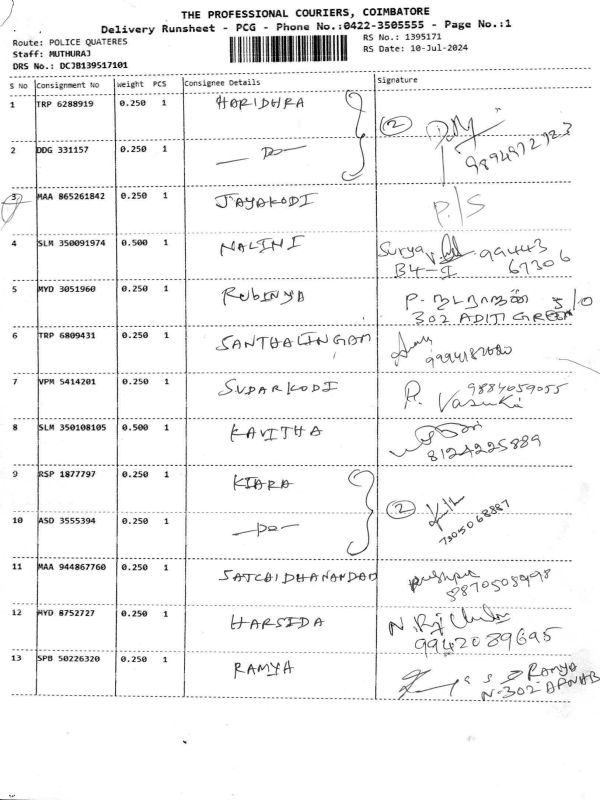 THE PROFESSIONAL COURIERS, COIMBATORE
Delivery Runsheet - PCG - Phone No.:0422-3505555 - Page No.:1
Route: POLICE QUATERES
RS No.: 1395171
Staff: MUTHURAJ
RS Date: 10-Jul-2024
DRS No.: DCJB139517101
S No Consignment No Weight PCS Consignee Details Signature
1 TRP 6288919 0.250 1 HARIDHRA
2
2 DDG 331157 0.250 1 -Do-
3 MAA 865261842 0.250 1 JAYAKODI P./S
4 SLM 350091974 0.500 1 NALINI Surya 99443
B4-I 67306
5 MYD 3051960 0.250 1 RUBINYA P. நடராஜன் S/O
302 ADITI
6 TRP 6809431 0.250 1 SANTHALINGAM
7 VPM 5414201 0.250 1 SUDARKODI 9884059055
P. Vasuki
8 SLM 350108105 0.500 1 KAVITHA
8124225889
9 RSP 1877797 0.250 1 KIARA
2
7305068887
10 ASD 3555394 0.250 1 -Do-
11 MAA 944867760 0.250 1 SATCHIDHANANDAD pushpa
8870508998
12 MYD 8752727 0.250 1 HARSIDA
9942089695
13 SPB 50226320 0.250 1 RAMYA RAMYA
N-302